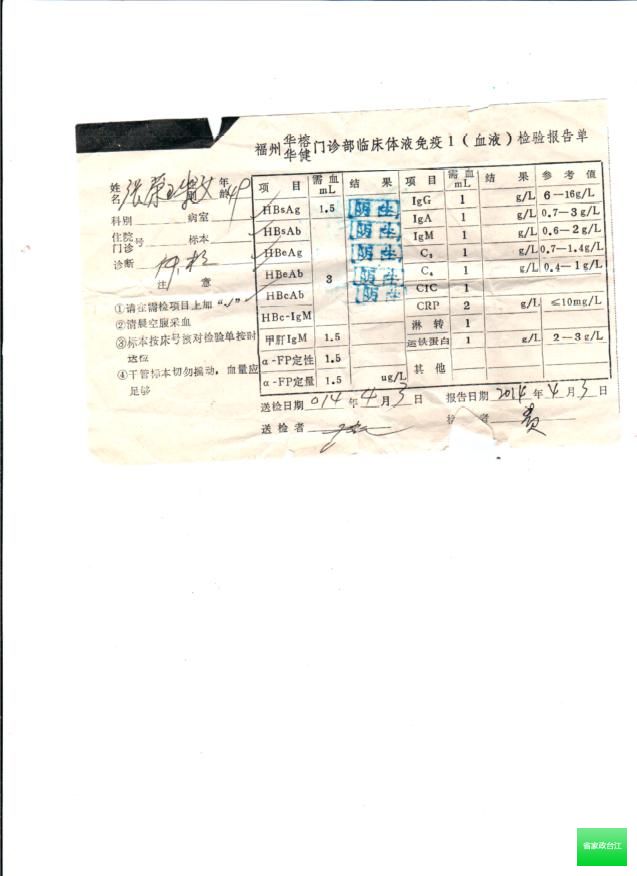 福州 华榕 华健 门诊部临床体液免疫1（血液）检验报告单
姓名 张 别 女 年龄 49
科别 病室
住院 门诊 号 标本
诊断 体检
注 意
①请在需检项目上加“√”
②清晨空腹采血
③标本按床号核对检验单按时
送检
④干管标本切勿摇动，血量应
足够
项 目 需血mL 结 果 项 目 需血mL 结 果 参 考 值
HBsAg 1.5 阴性 IgG 1 g/L 6－16g/L
HBsAb 阴性 IgA 1 g/L 0.7－3g/L
HBeAg 阴性 IgM 1 g/L 0.6－2g/L
HBeAb 3 阴性 C₃ 1 g/L 0.7－1.4g/L
HBcAb 阴性 C₄ 1 g/L 0.4－1g/L
HBc-IgM CIC 1
甲肝IgM 1.5 CRP 2 g/L ≤10mg/L
α-FP定性 1.5 淋 转 1
α-FP定量 1.5 ug/L 运铁蛋白 1 g/L 2－3g/L
其 他
送检日期 014 年 4 月 3 日 报告日期 2014 年 4 月 3 日
送 检 者 者 黄
省家政台江